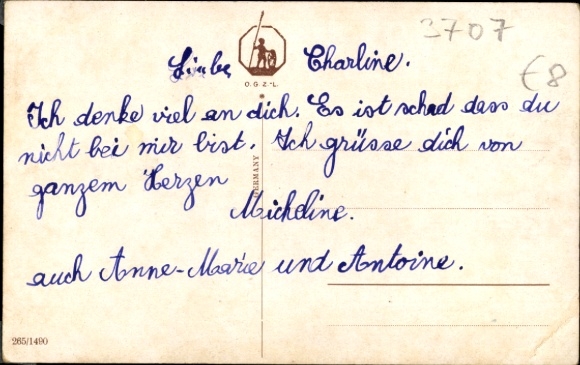 3707
€8
Liebe Charline.
O.G.Z.-L.
Ich denke viel an dich. Es ist schad dass du
nicht bei mir bist. Ich grüsse dich von
ganzem Herzen
GERMANY
Micheline.
auch Anne-Marie und Antoine.
265/1490